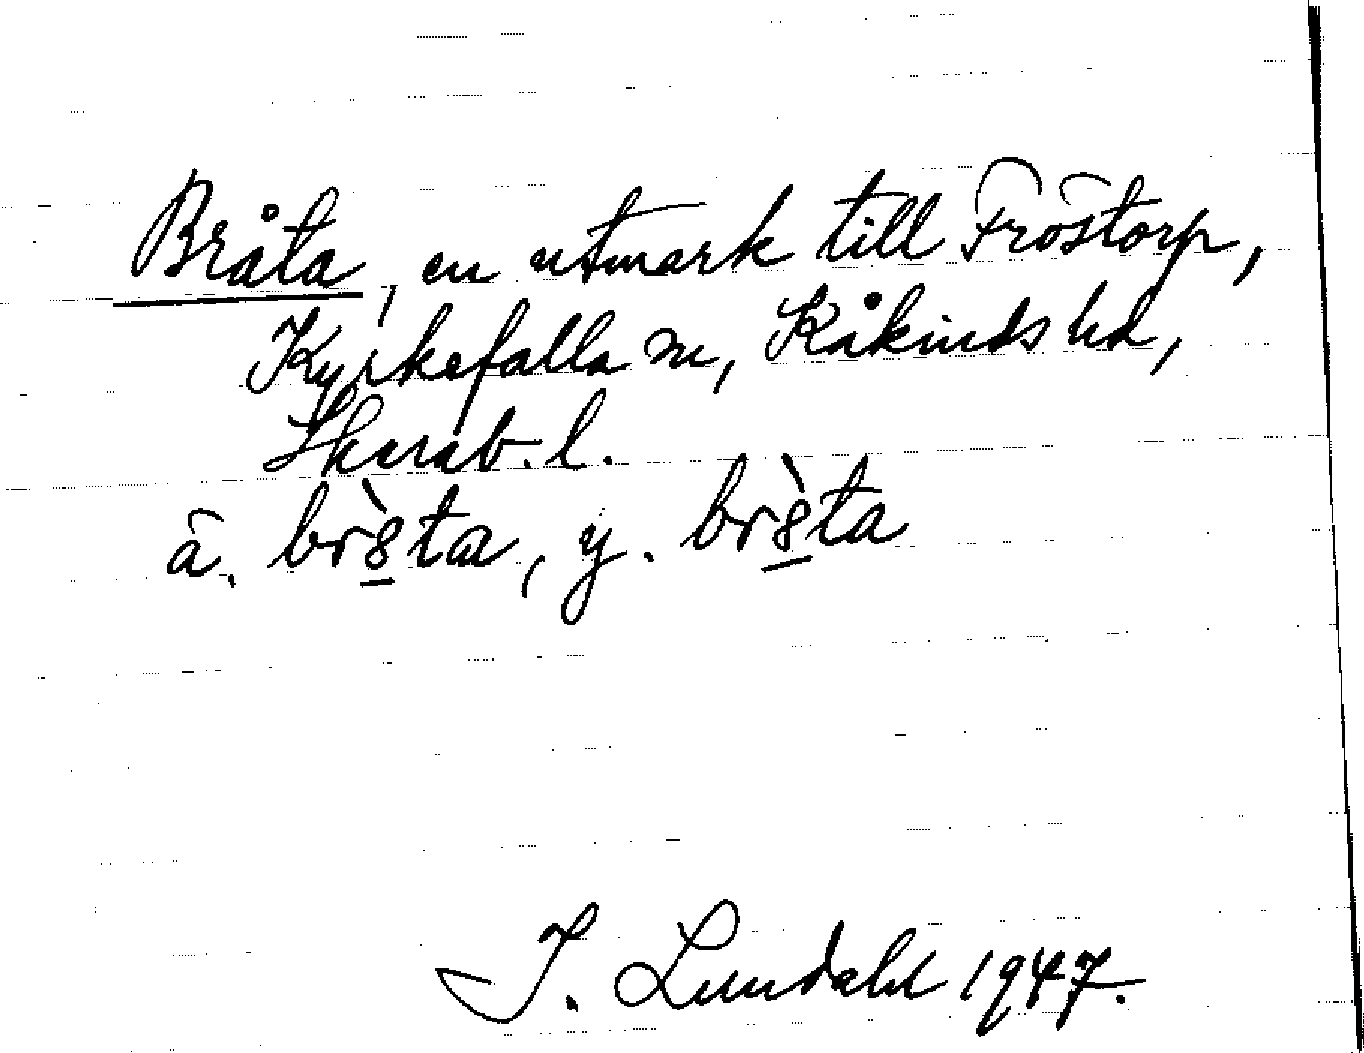 Bråta, en utmark till Fröstorp,
Kyrkefalla sn, Kåkinds hd,
Skarab. l.
ä. br8̲̀ta, y. br8̲̀ta
I. Lundahl 1947.